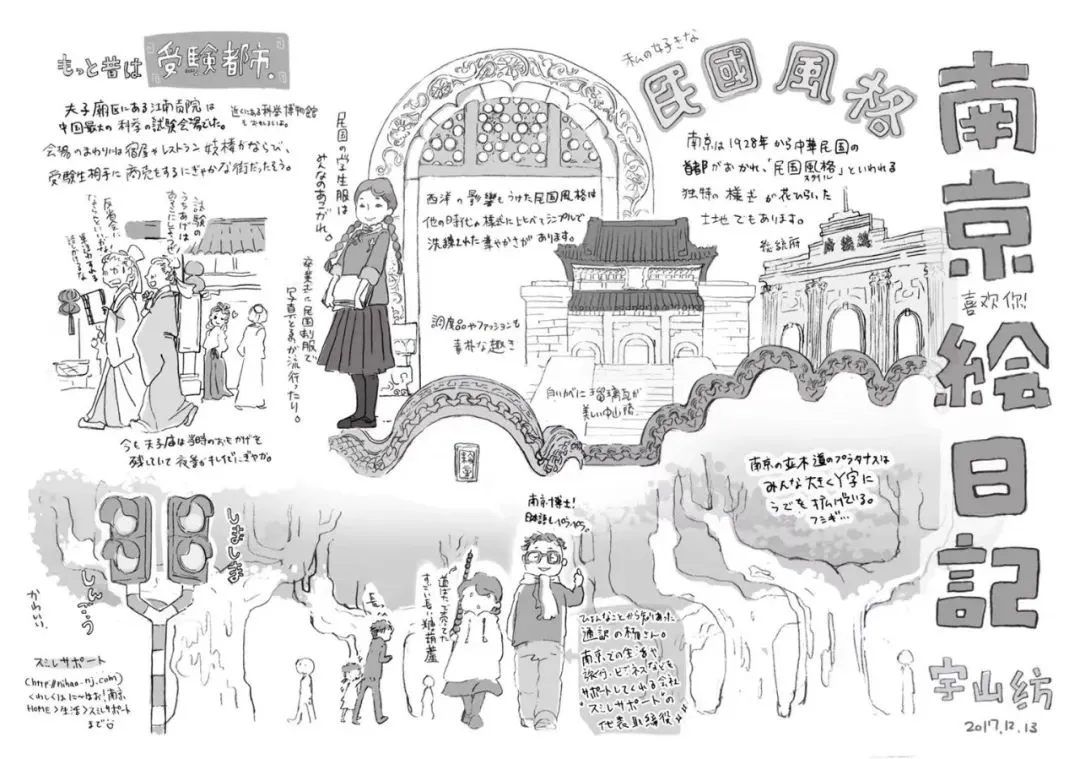 南京絵日記
喜欢你!
宇山紡
2017.12.13
私の好きな
民國風格
南京は1928年から中華民国の
首都がおかれ、「民国風格」といわれる
スタイル
独特の様式が花ひらいた
土地でもあります。
総統府
西洋の影響もうけた民国風格は
他の時代の様式にくらべてシンプルで
洗練された華やかさがあります。
調度品やファッションも
素朴な趣き
白いかべに瑠璃瓦が
美しい中山陵
民国の学生服は
みんなのあこがれ。
卒業式に民国制服で
写真とるのが流行ったり。
もっと昔は『受験都市』
夫子廟区にある江南貢院は
中国最大の科挙の試験会場でした。
近くにある科挙博物館
もおもしろいよ。
会場のまわりは宿屋やレストラン 妓楼がならび、
受験生相手に商売をするにぎやかな街だったそう。
試験の
うちあげは
あそこにしようぜ!
反省会に
ならないといいがな
今も夫子廟は当時のおもかげを
残していて夜景がキレイだしにぎやか。
南京の並木道のプラタナスは
みんな大きくY字に
うでを拡げている。
フシギ…
南京博士!
日本語もペラペラ。
ひょんなことから知りあった
通訳の楊さん。
南京での生活や
旅行、ビジネスなどを
サポートしてくれる会社
"スミレサポート"の
代表取締役!
道ばたで売ってた
すごい長い糖葫芦
長っ
しましま
しんごう
かわいい。
スミレサポート
(http://nihao-nj.com)
くわしくはに〜はお!南京
HOME>生活>スミレサポート
まで